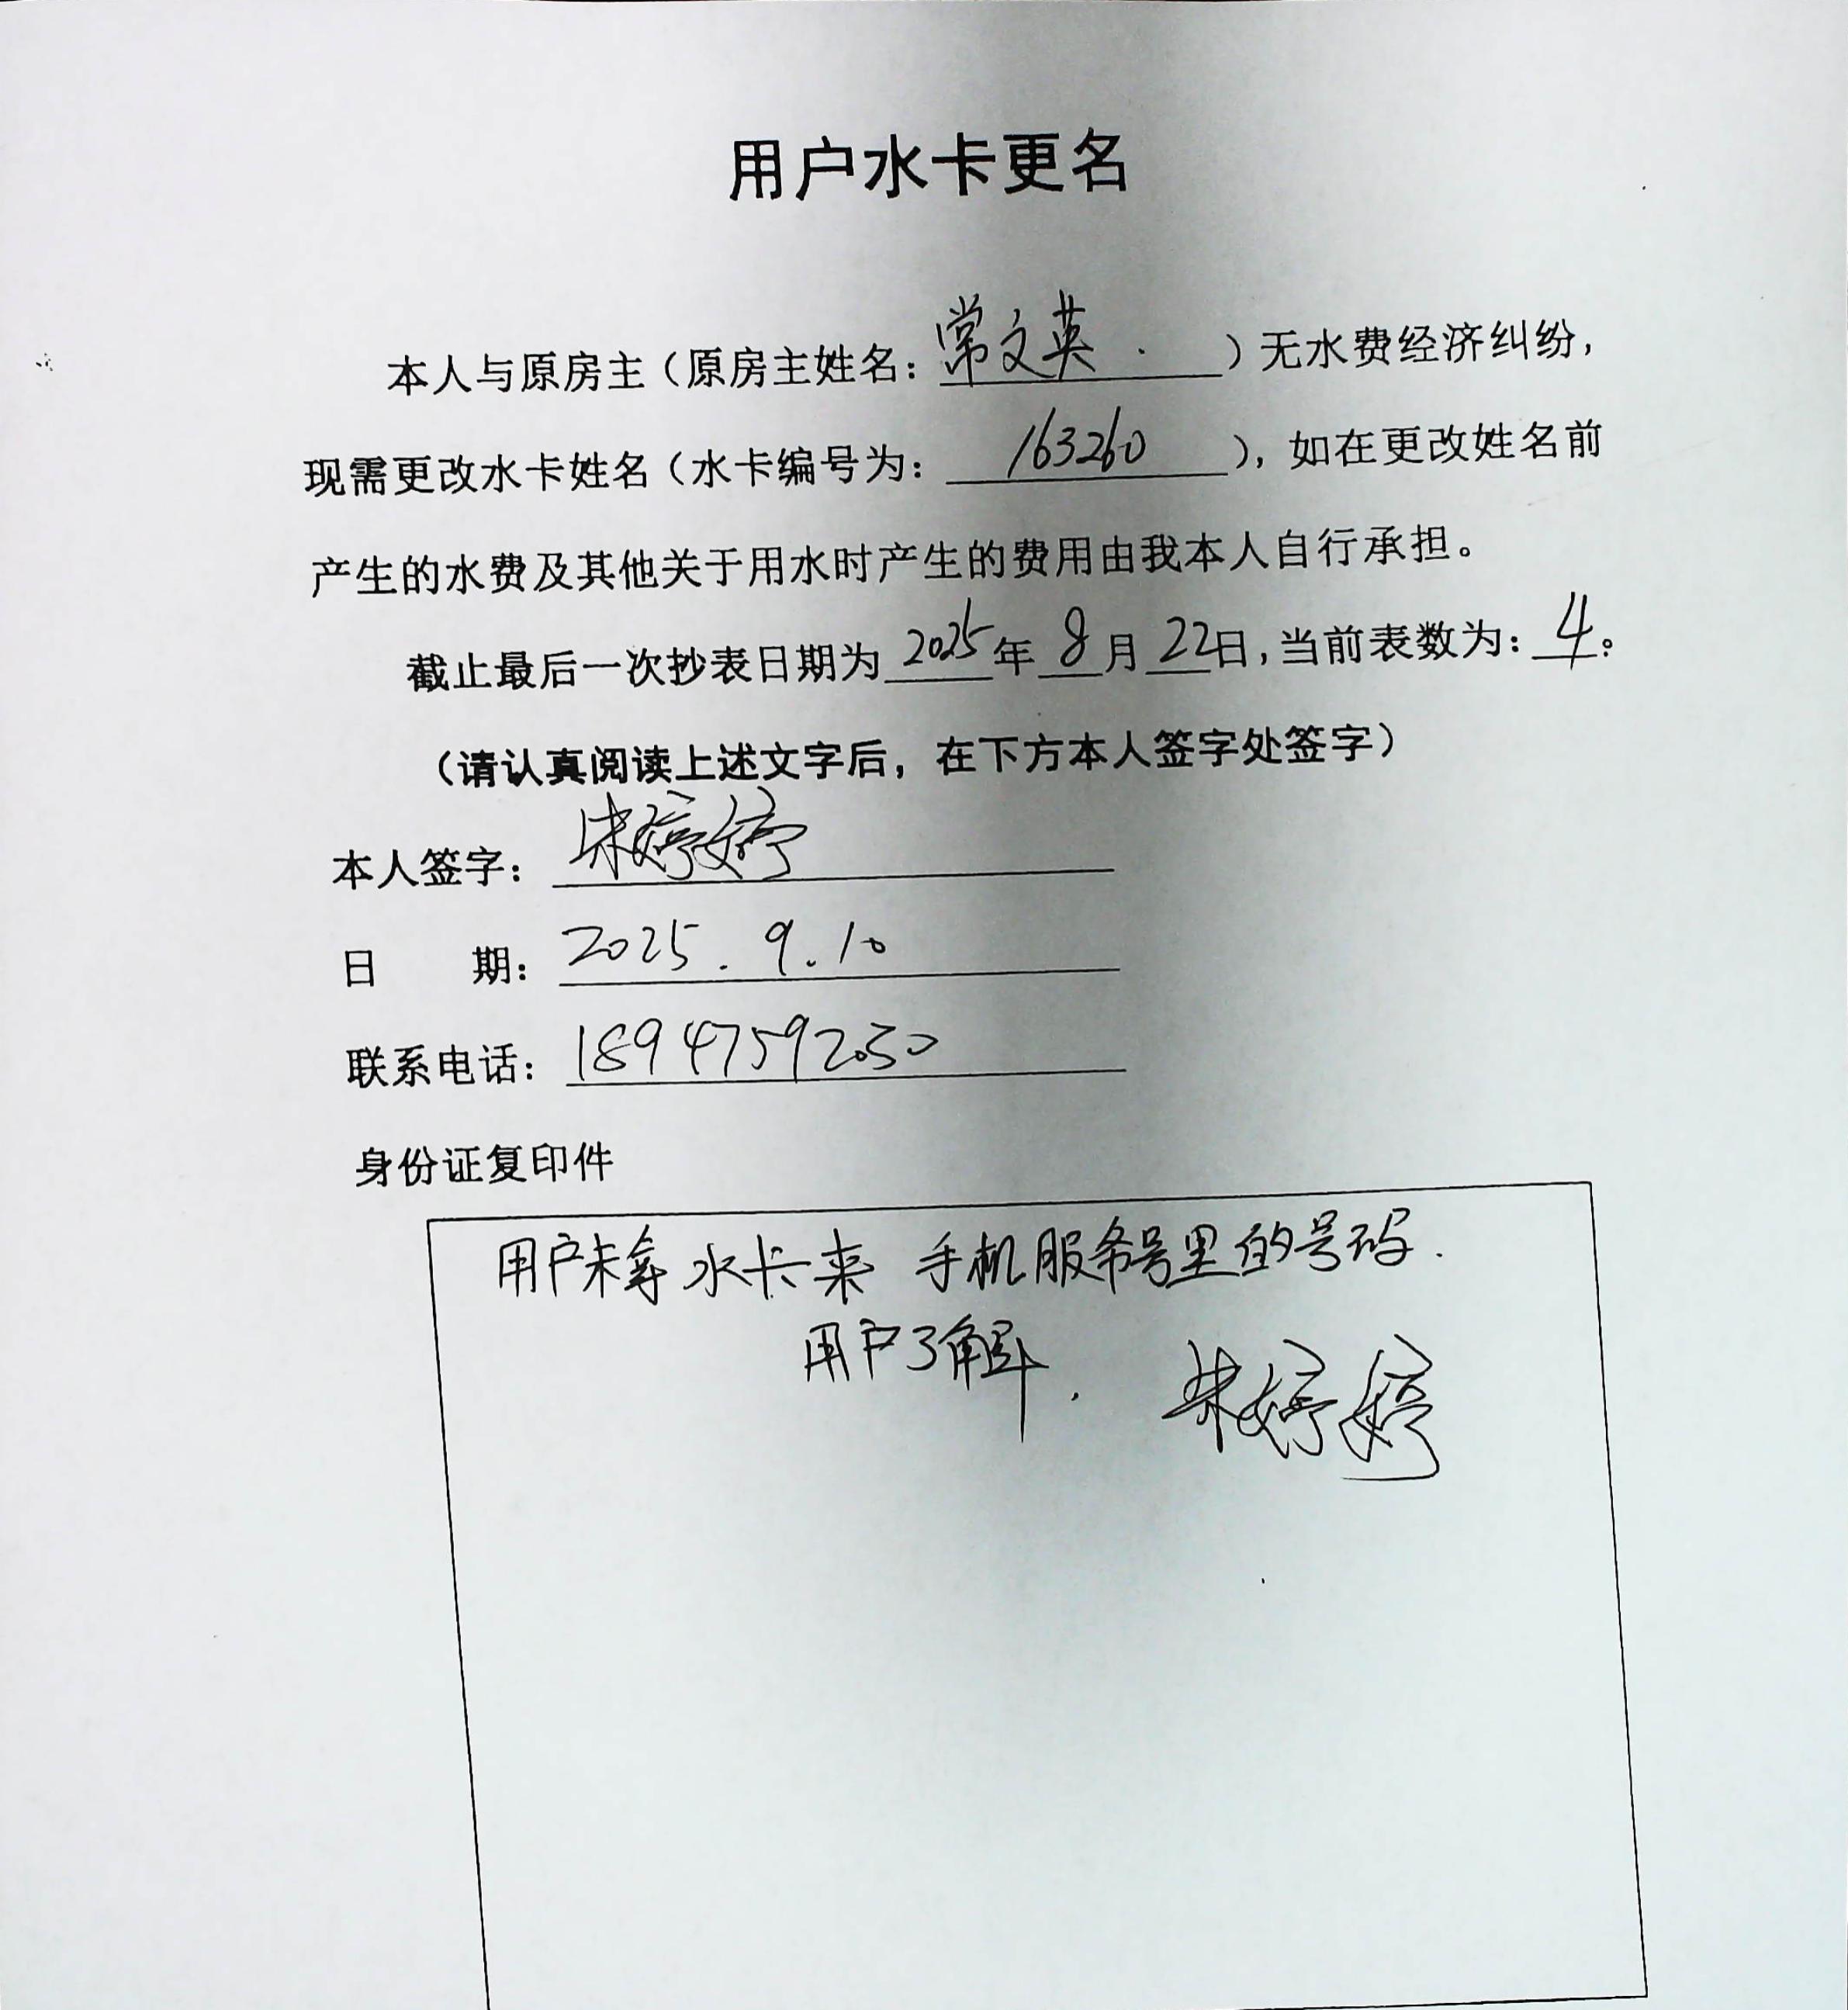 用户水卡更名
本人与原房主（原房主姓名：常文英．）无水费经济纠纷，
现需更改水卡姓名（水卡编号为：163260），如在更改姓名前
产生的水费及其他关于用水时产生的费用由我本人自行承担。
截止最后一次抄表日期为2025年8月22日，当前表数为：4。
（请认真阅读上述文字后，在下方本人签字处签字）
本人签字：朱婷婷
日 期：2025.9.10
联系电话：18947592030
身份证复印件
用户未拿水卡来 手机服务号里的号码.
用户了解. 朱婷婷